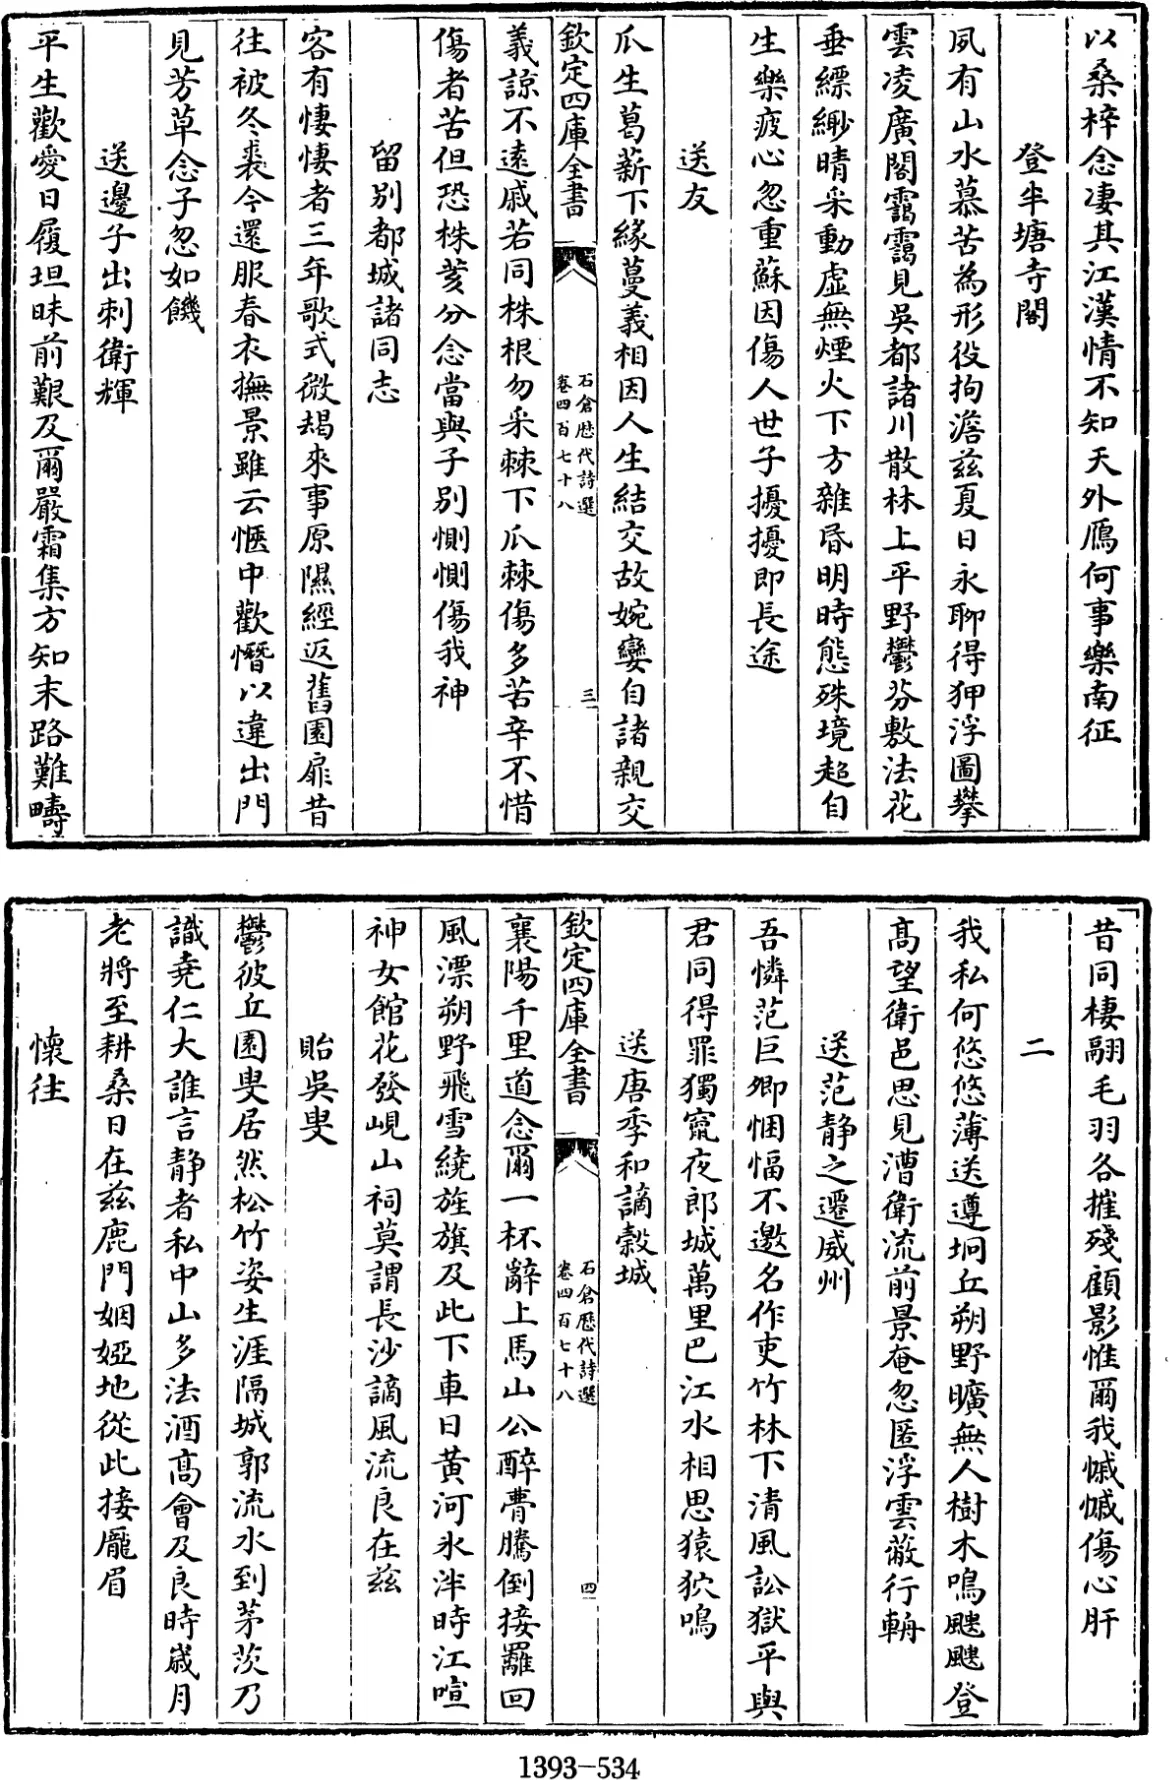 以桑梓念凄其江漢情不知天外鴈何事樂南征
登半塘寺閣
夙有山水慕苦為形役拘澹兹夏日永聊得狎浮圖攀
雲凌廣閣靄靄見吳都諸川散林上平野鬱芬敷法花
垂縹緲晴采動虛無煙火下方雜昏明時態殊境超自
生樂疲心忽重蘇因傷人世子擾擾即長途
送友
爪生葛薪下緣蔓義相因人生結交故婉孌自諸親交
欽定四庫全書
石倉歷代詩選
卷四百七十八
三
義諒不遠戚若同株根勿采棘下爪棘傷多苦辛不惜
傷者苦但恐株荄分念當與子別惻惻傷我神
留別都城諸同志
客有悽悽者三年歌式微朅來事原隰經返舊園扉昔
往被冬裘今還服春衣撫景雖云愜中歡憯以違出門
見芳草念子忽如饑
送邊子出刺衛輝
平生歡愛日履坦昧前艱及爾嚴霜集方知末路難疇
昔同棲翮毛羽各摧殘顧影惟爾我慽慽傷心肝
二
我私何悠悠薄送遵坰丘朔野曠無人樹木鳴颼颼登
髙望衛邑思見漕衛流前景奄忽匿浮雲蔽行輈
送范靜之遷威州
吾憐范巨卿悃愊不邀名作吏竹林下清風訟獄平與
君同得罪獨竄夜郎城萬里巴江水相思猿狖鳴
送唐季和謫穀城
欽定四庫全書
石倉歷代詩選
卷四百七十八
四
襄陽千里道念爾一杯辭上馬山公醉瞢騰倒接羅回
風漂朔野飛雪繞旌旗及此下車日黄河氷泮時江喧
神女館花發峴山祠莫謂長沙謫風流良在兹
貽吳叟
鬱彼丘園叟居然松竹姿生涯隔城郭流水到茅茨乃
識堯仁大誰言靜者私中山多法酒髙會及良時歲月
老將至耕桑日在兹鹿門姻婭地從此接龎眉
懷往
1393-534